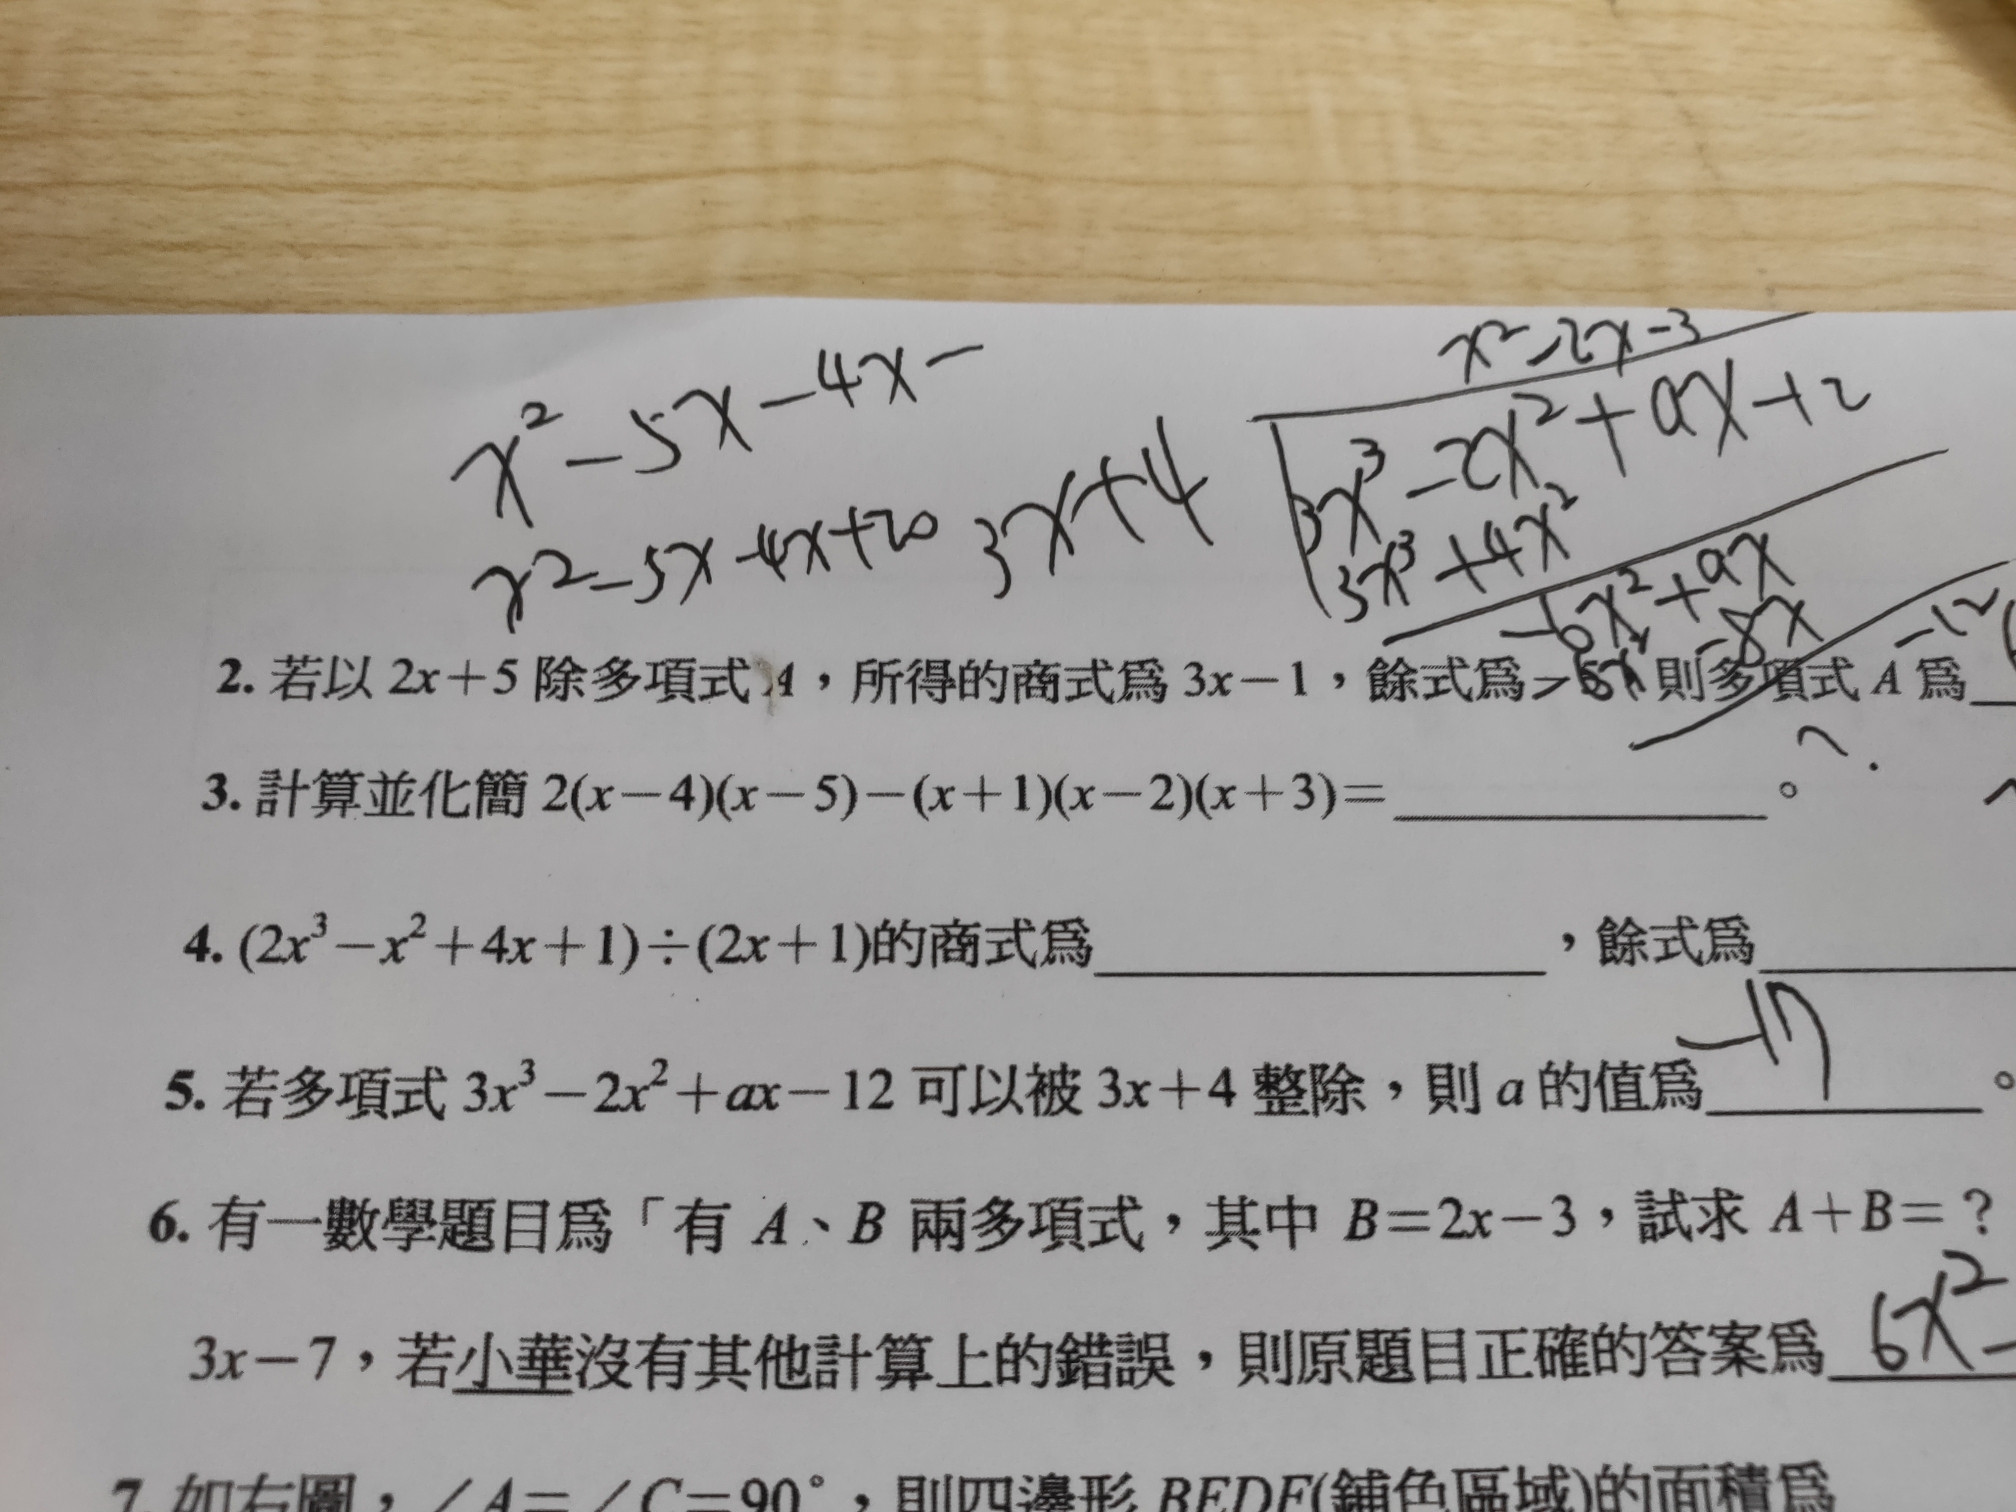 x²-2x-3
x²-5x-4x-
3x+4
3x³-2x²+ax+2
x²-5x-4x+20
3x³+4x²
-6x²+ax
-8x
-12
2. 若以 2x+5 除多項式 A，所得的商式為 3x-1，餘式為 則多項式 A 為
3. 計算並化簡 2(x-4)(x-5)-(x+1)(x-2)(x+3)=__________。
4. (2x³-x²+4x+1)÷(2x+1)的商式為__________，餘式為__________
5. 若多項式 3x³-2x²+ax-12 可以被 3x+4 整除，則 a 的值為 -17 。
6. 有一數學題目為「有 A、B 兩多項式，其中 B=2x-3，試求 A+B=？
3x-7，若小華沒有其他計算上的錯誤，則原題目正確的答案為 6x²-
7. 如右圖，∠A=∠C=90°，則四邊形 BEDF(鋪色區域)的面積為